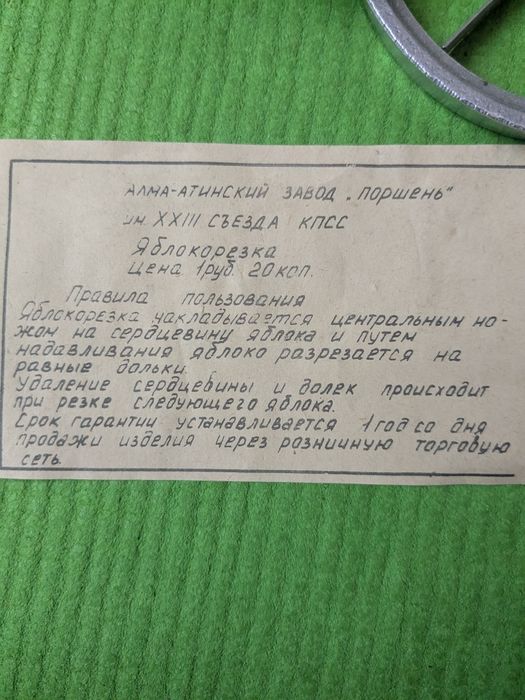 АЛМА-АТИНСКИЙ ЗАВОД „ПОРШЕНЬ"
им. XXIII СЪЕЗДА КПСС
Яблокорезка
Цена 1 руб. 20 коп.
Правила пользования
Яблокорезка накладывается центральным но-
жом на сердцевину яблока и путем
надавливания яблоко разрезается на
равные дольки.
Удаление сердцевины и долек происходит
при резке следующего яблока.
Срок гарантии устанавливается 1 год со дня
продажи изделия через розничную торговую
сеть.